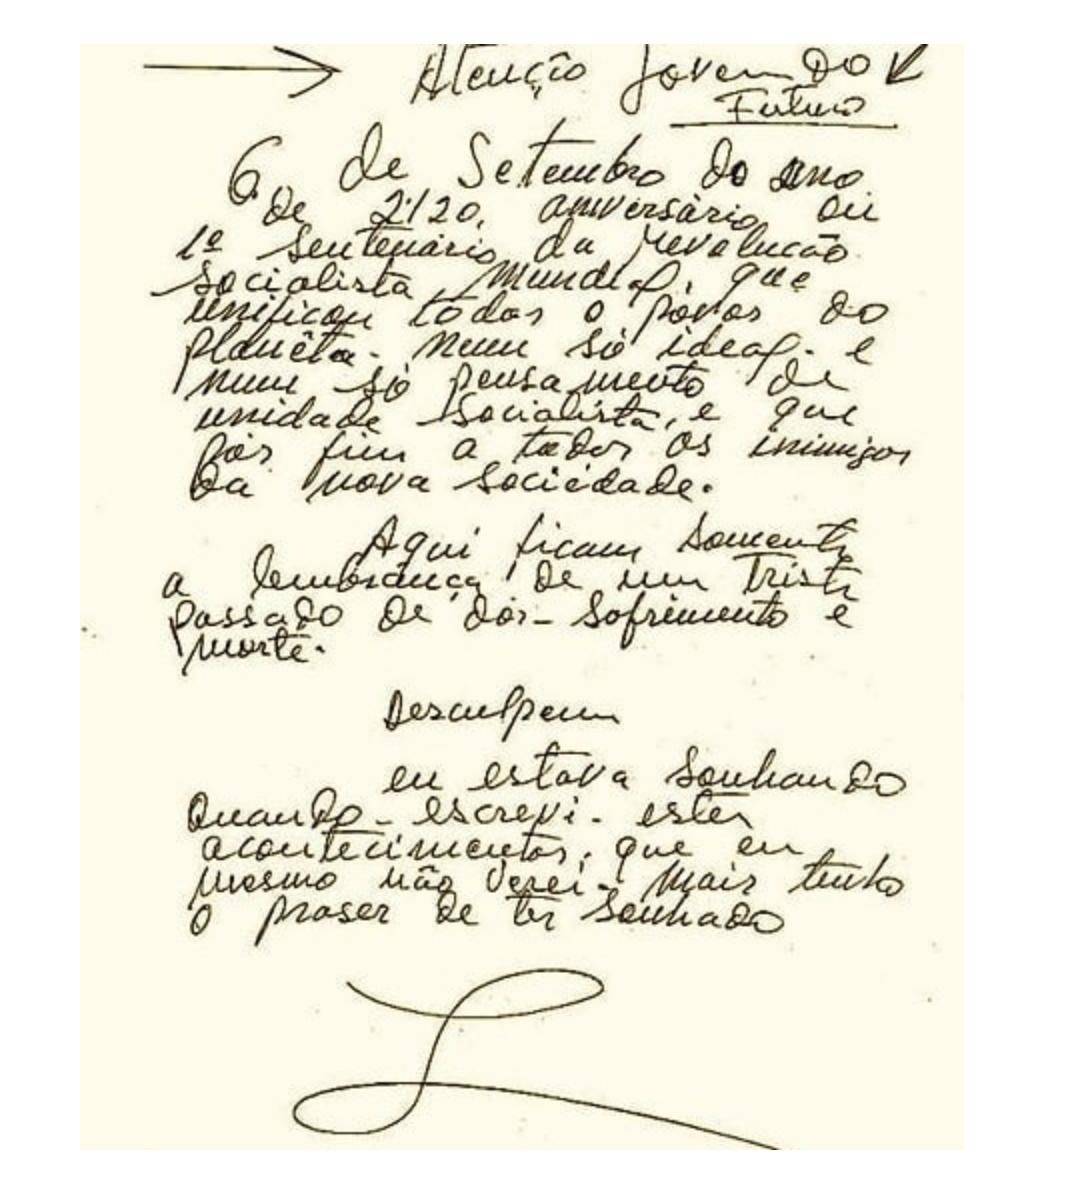 Atenção Jovem do
Futuro
6 de Setembro do ano
de 2120, aniversário ou
1º Sentenário da revolução
Socialista Mundial, que
unificou todos o póvos do
planêta. Num só ideal. e
num só pensamento de
unidade socialista, e que
pôs fim a todos os inimigos
da nova sociedade.
Aqui ficam somente
a lembrança de um triste
passado de dôr - sofrimento e
morte.
Desculpem
eu estava sonhando
Quando - escrevi - estes
acontecimentos, que eu
mesmo não verei. Mais tenho
o praser de ter sonhado